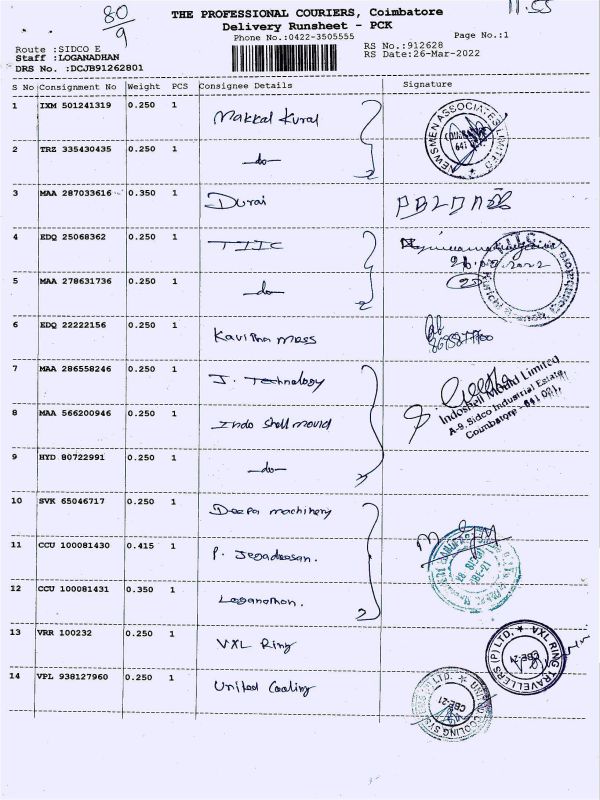 80
9
11.55
THE PROFESSIONAL COURIERS, Coimbatore
Delivery Runsheet - PCK
Phone No.:0422-3505555
Page No.:1
Route :SIDCO E
RS No.:912628
Staff :LOGANADHAN
RS Date:26-Mar-2022
DRS No. :DCJB91262801
S No Consignment No Weight PCS Consignee Details Signature
1 IXM 501241319 0.250 1 Makkal Kural
NEWSMEN ASSOCIATES LIMITED
2 TRZ 335430435 0.250 1 -do-
3 MAA 287033616 0.350 1 Durai
4 EDQ 25068362 0.250 1 TIIC
5 MAA 278631736 0.250 1 -do-
6 EDQ 22222156 0.250 1 Kavitha mess
7 MAA 286558246 0.250 1 J. Technology
Indoshell Mould Limited
A-9, Sidco Industrial Estate,
Coimbatore - 641 021.
8 MAA 566200946 0.250 1 Indo Shell mould
9 HYD 80722991 0.250 1 -do-
10 SVK 65046717 0.250 1 Deepa machinery
11 CCU 100081430 0.415 1 P. Jegadeesan.
12 CCU 100081431 0.350 1 Loganathan.
13 VRR 100232 0.250 1 VXL Ring
VXL RING TRAVELLERS (P) LTD.
CBE-21
14 VPL 938127960 0.250 1 United Cooling
CBE-21